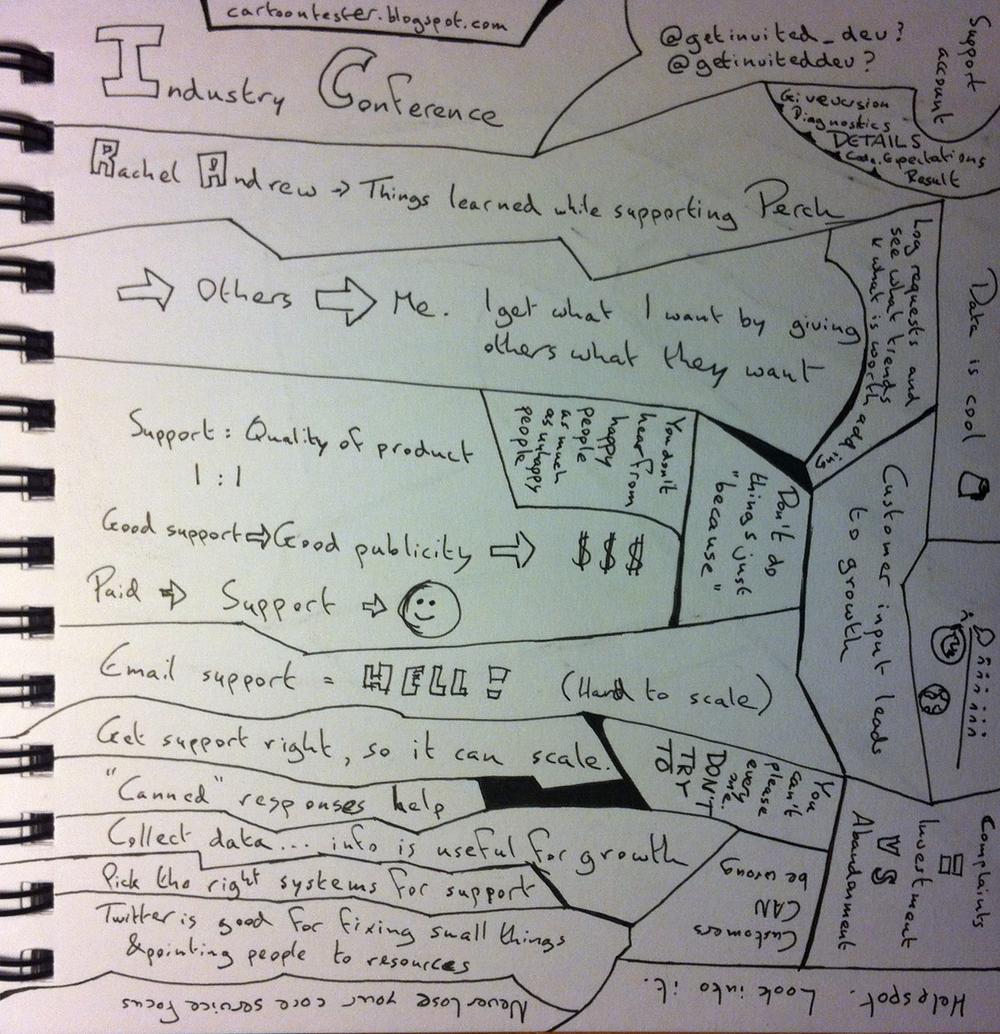 cartoontester.blogspot.com
Industry Conference
@getinvited_dev?
@getinviteddev?
Support
account
Give version
Diagnostics
DETAILS
Code. Expectations
Result
Rachel Andrew → Things learned while supporting Perch
Log requests and
see what trends
& what is worth adding
Data is cool
⇨ Others ⇨ Me. I get what I want by giving
others what they want
Support : Quality of product
1 : 1
You don't
hear from
happy
people
as much
as unhappy
people
Don't do
things just
"because"
Customer input leads
to growth
Good support ⇨ Good publicity ⇨ $ $ $
Paid ⇨ Support ⇨
Email support = HELL! (Hard to scale)
Get support right, so it can scale.
You
can't
please
every
one.
DON'T
TRY
TO
"Canned" responses help
Collect data... info is useful for growth
Pick the right systems for support
Twitter is good for fixing small things
& pointing people to resources
Customers
CAN
be wrong
Complaints
=
Investment
VS
Abandonment
Never lose your core service focus
Helpspot. Look into it.